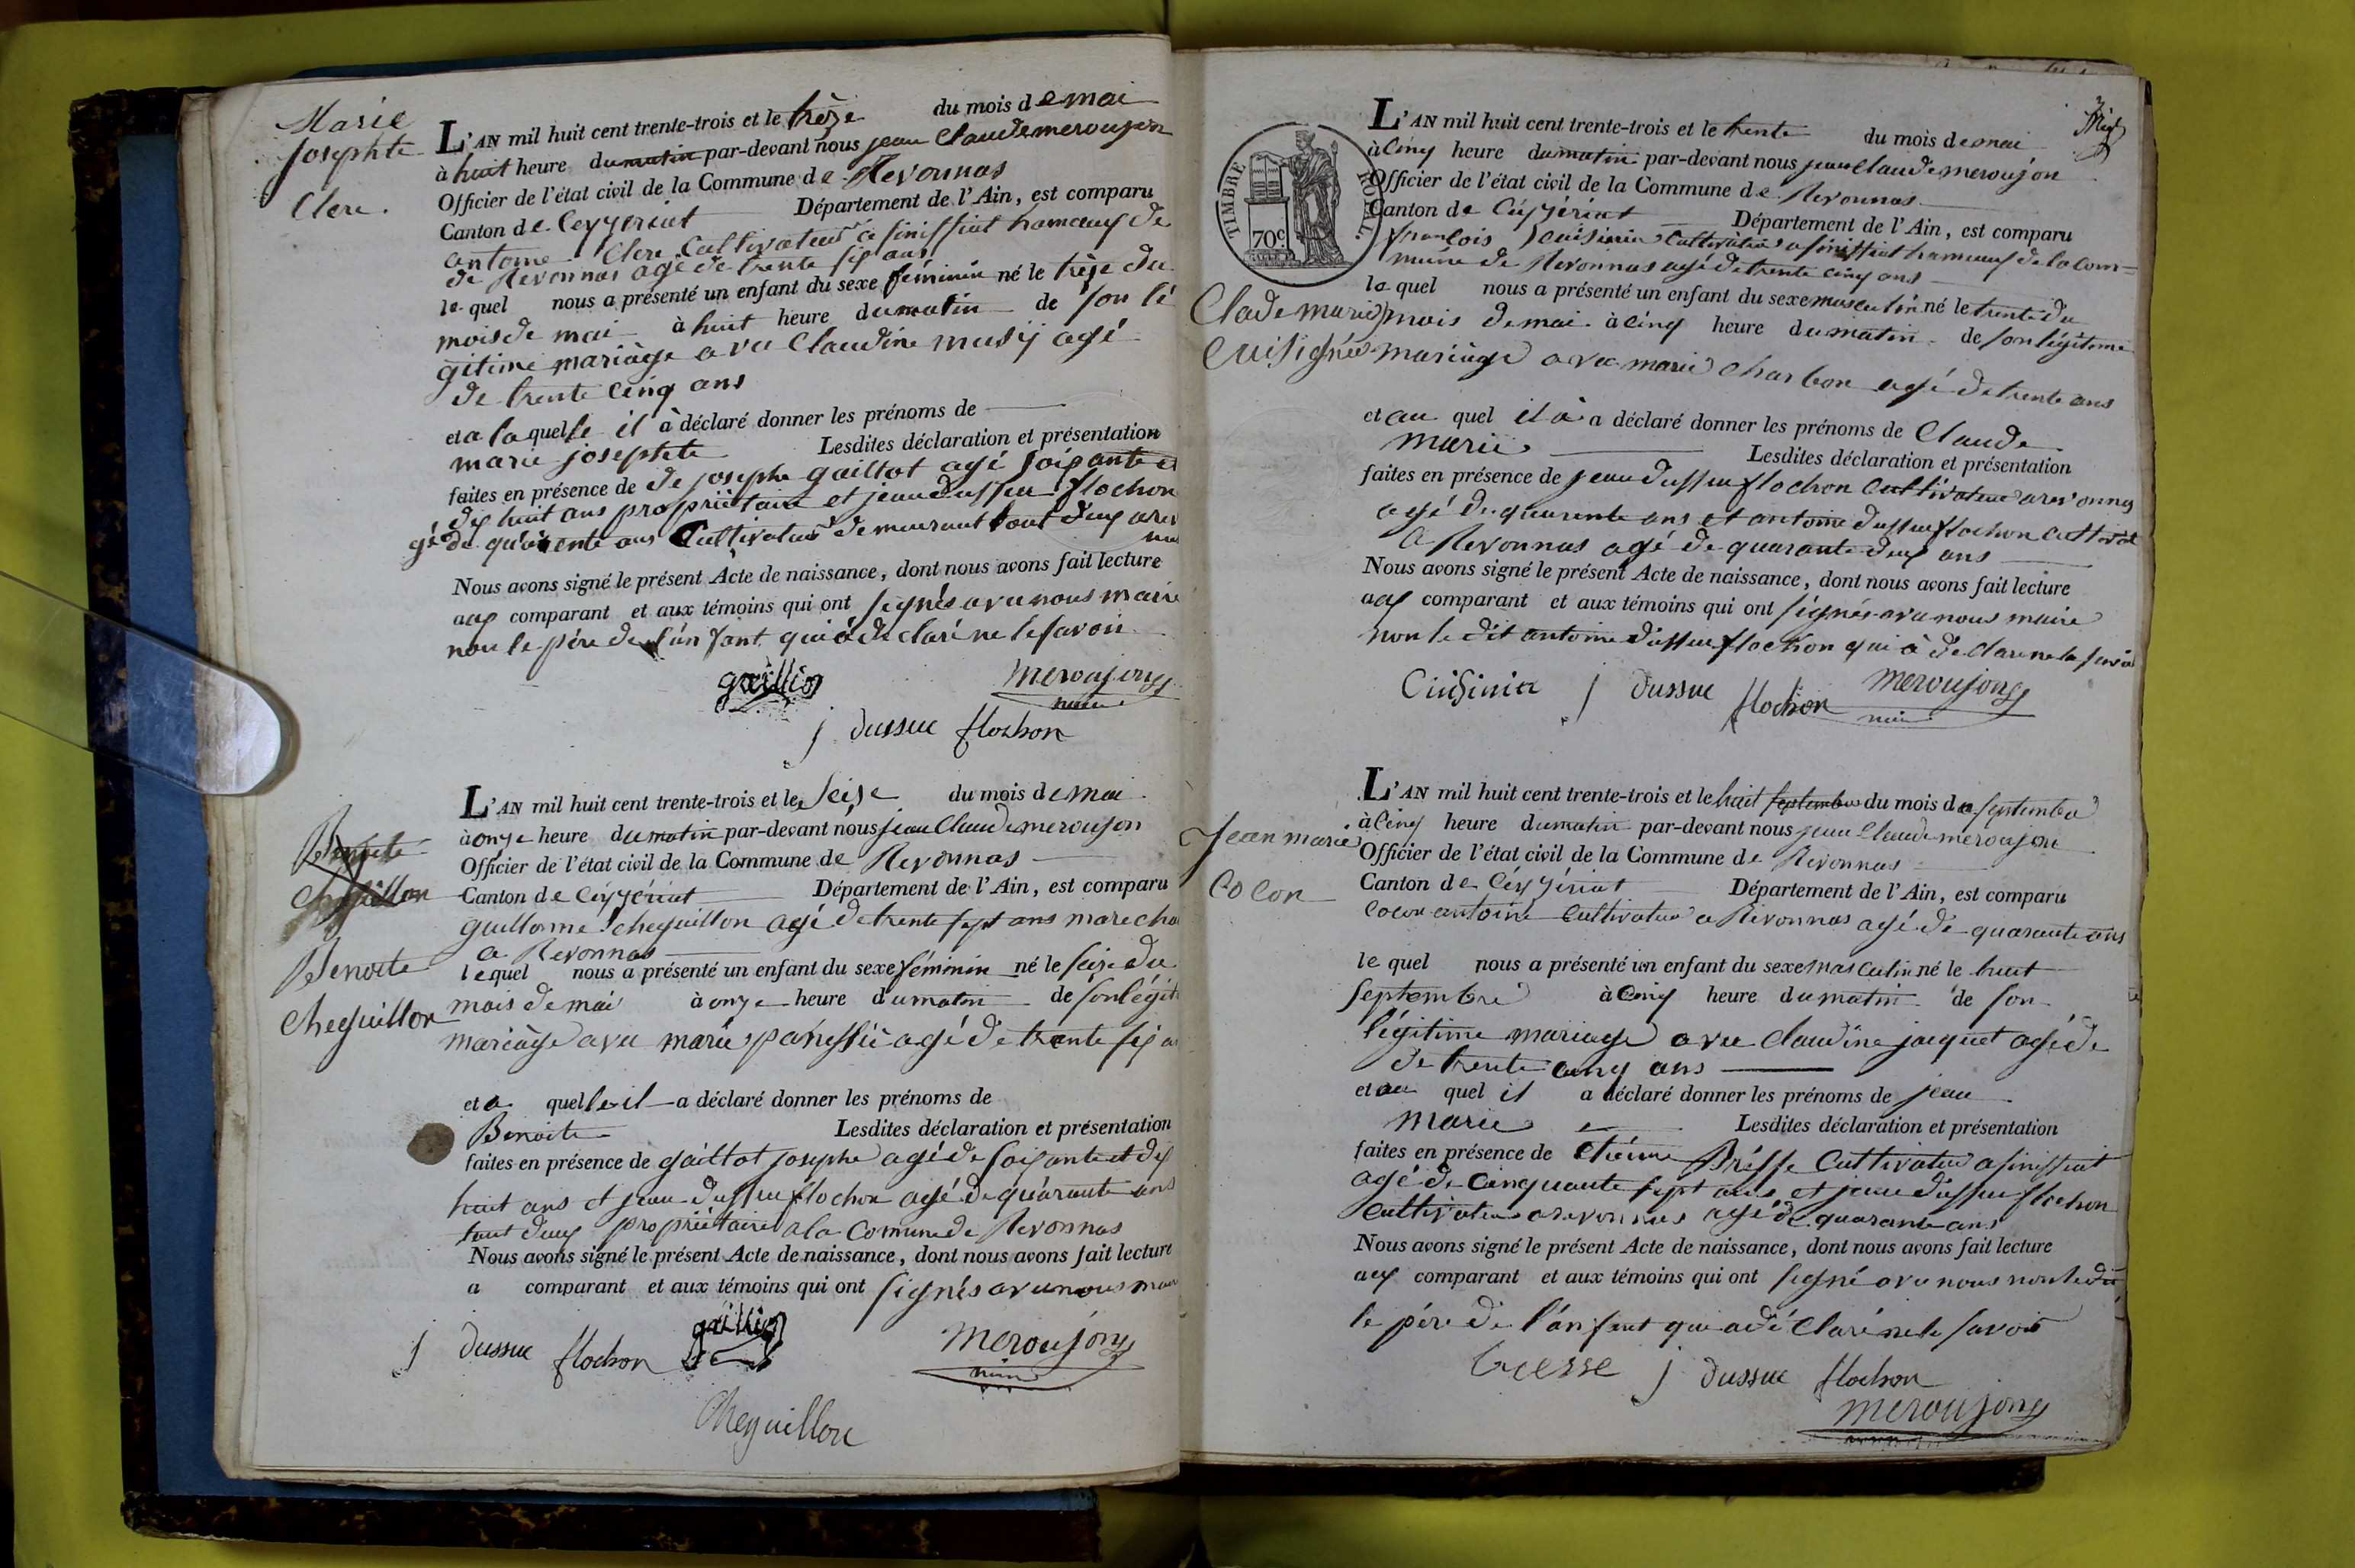 Marie
Josephte
Clerc.
L'AN mil huit cent trente-trois et le trèze du mois de mai
à huit heure du matin par-devant nous jean Claude meroujon
Officier de l'état civil de la Commune de Revonnas
Canton de Ceyzeriat Département de l'Ain, est comparu
antoine Clerc Cultivateur a sinissiat hameaux de
de Revonnas agé de trente six ans
le quel nous a présenté un enfant du sexe féminin né le trèze du
mois de mai à huit heure du matin de son lé
gitime mariàge avec Claudine musÿ agé
de trente cinq ans
et a la quelle il à déclaré donner les prénoms de
marie josephte Lesdites déclaration et présentation
faites en présence de de josephe gaillot agé soixante et
dix huit ans propriétaire et jean dussuc flochon
gé de quarente ans Cultivateur demeurant tout deux a rev
nas
Nous avons signé le présent Acte de naissance, dont nous avons fait lecture
aux comparant et aux témoins qui ont signés avec nous maire
non le père de l'únfant qui à déclaré ne le savoir
gaillio
meroujon
maire
j dussuc flochon
Benoite
Cheguillon
Benoite
Cheguillon
L'AN mil huit cent trente-trois et le seize du mois de mai
à onze heure du matin par-devant nous jean Claude meroujon
Officier de l'état civil de la Commune de Revonnas
Canton de Céÿzériat Département de l'Ain, est comparu
guillaume cheguillon agé de trente sept ans marecha
a Revonnas
le quel nous a présenté un enfant du sexe féminin né le seize du
mois de mai à onze heure du matin de son légiti
mariàge avec marie agé de trente six a
et a quelle il a déclaré donner les prénoms de
Benoite Lesdites déclaration et présentation
faites en présence de gaillot josephe agé de soixante et dix
huit ans et jean dussuc flochon agé de quarante ans
tout deux propriétaire a la Comune de Revonnas
Nous avons signé le présent Acte de naissance, dont nous avons fait lecture
a comparant et aux témoins qui ont signés avec nous mair
j dussuc flochon gaillio meroujon
maire
Cheguillon
TIMBRE ROYAL.
70c
L'AN mil huit cent trente-trois et le trente du mois de mai
à Cinq heure du matin par-devant nous jean Claude meroujon
Officier de l'état civil de la Commune de Revonnas
Canton de Céÿzériat Département de l'Ain, est comparu
françois Cuisinier Cultivateur a sinissiat hameaux de la com=
mune de Revonnas agé de trente cinq ans
le quel nous a présenté un enfant du sexe masculin né le trente du
Clade marie
mois de mai à cinq heure du matin de son légitime
Cuisignier
mariàge avec marie charbon agé de trente ans
et au quel il à a déclaré donner les prénoms de Claude
marie Lesdites déclaration et présentation
faites en présence de jean dussuc flochon Cultivateur a revonnas
agé de quarente ans et antoine dussuc flochon cultivat
a Revonnas agé de quarante deux ans
Nous avons signé le présent Acte de naissance, dont nous avons fait lecture
aux comparant et aux témoins qui ont signés avec nous maire
non le dit antoine dussuc flochon qui à déclaré ne le savoir
Cuisinier j dussuc flochon meroujon
maire
Jean marie
Colon
L'AN mil huit cent trente-trois et le huit septembre du mois de septembre
à Cinq heure du matin par-devant nous jean Claude meroujon
Officier de l'état civil de la Commune de Revonnas
Canton de Céÿzériat Département de l'Ain, est comparu
Colon antoine Cultivateur a Revonnas agé de quarante ans
le quel nous a présenté un enfant du sexe masculin né le huit
septembre à Cinq heure du matin de son
légitime mariage avec Claudine jacquet agé de
de trente cinq ans
et au quel il a déclaré donner les prénoms de jean
marie Lesdites déclaration et présentation
faites en présence de étiénne Brésse Cultivateur a sinissiat
agé de Cinquante sept ans et jean dussuc flochon
Cultivateur a revonnas agé de quarante ans
Nous avons signé le présent Acte de naissance, dont nous avons fait lecture
aux comparant et aux témoins qui ont signé avec nous non le dit
le pére de l'ánfant qui a déclaré ne le savoir
Bresse j dussuc flochon
meroujon